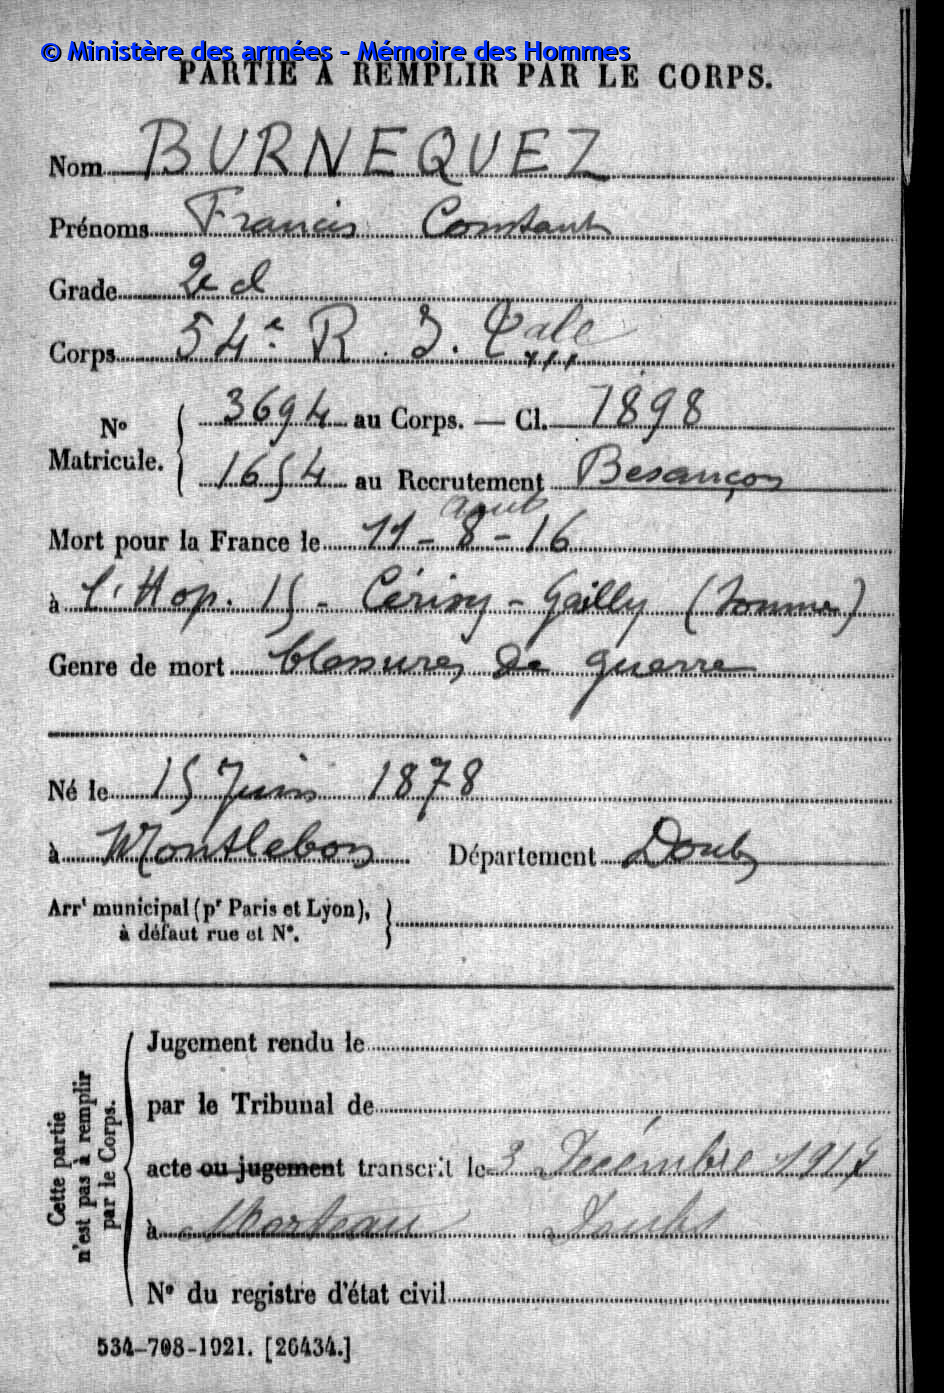 © Ministère des armées - Mémoire des Hommes
PARTIE À REMPLIR PAR LE CORPS.
Nom BURNEQUEZ
Prénoms Francis Constant
Grade 2e cl
Corps 54e R. I. Cale
No Matricule. 3694 au Corps. — Cl. 1898
1654 au Recrutement Besançon
août
Mort pour la France le 11 - 8 - 16
à l'Hop. 15 - Cérisy - Gailly (Somme)
Genre de mort blessures de guerre
Né le 15 Juin 1878
à Montlebon Département Doubs
Arrt municipal (pr Paris et Lyon),
à défaut rue et No.
Cette partie
n'est pas à remplir
par le Corps.
Jugement rendu le
par le Tribunal de
acte ou jugement transcrit le 3 Décembre 191
à Morteau Doubs
No du registre d'état civil
534-708-1921. [26434.]